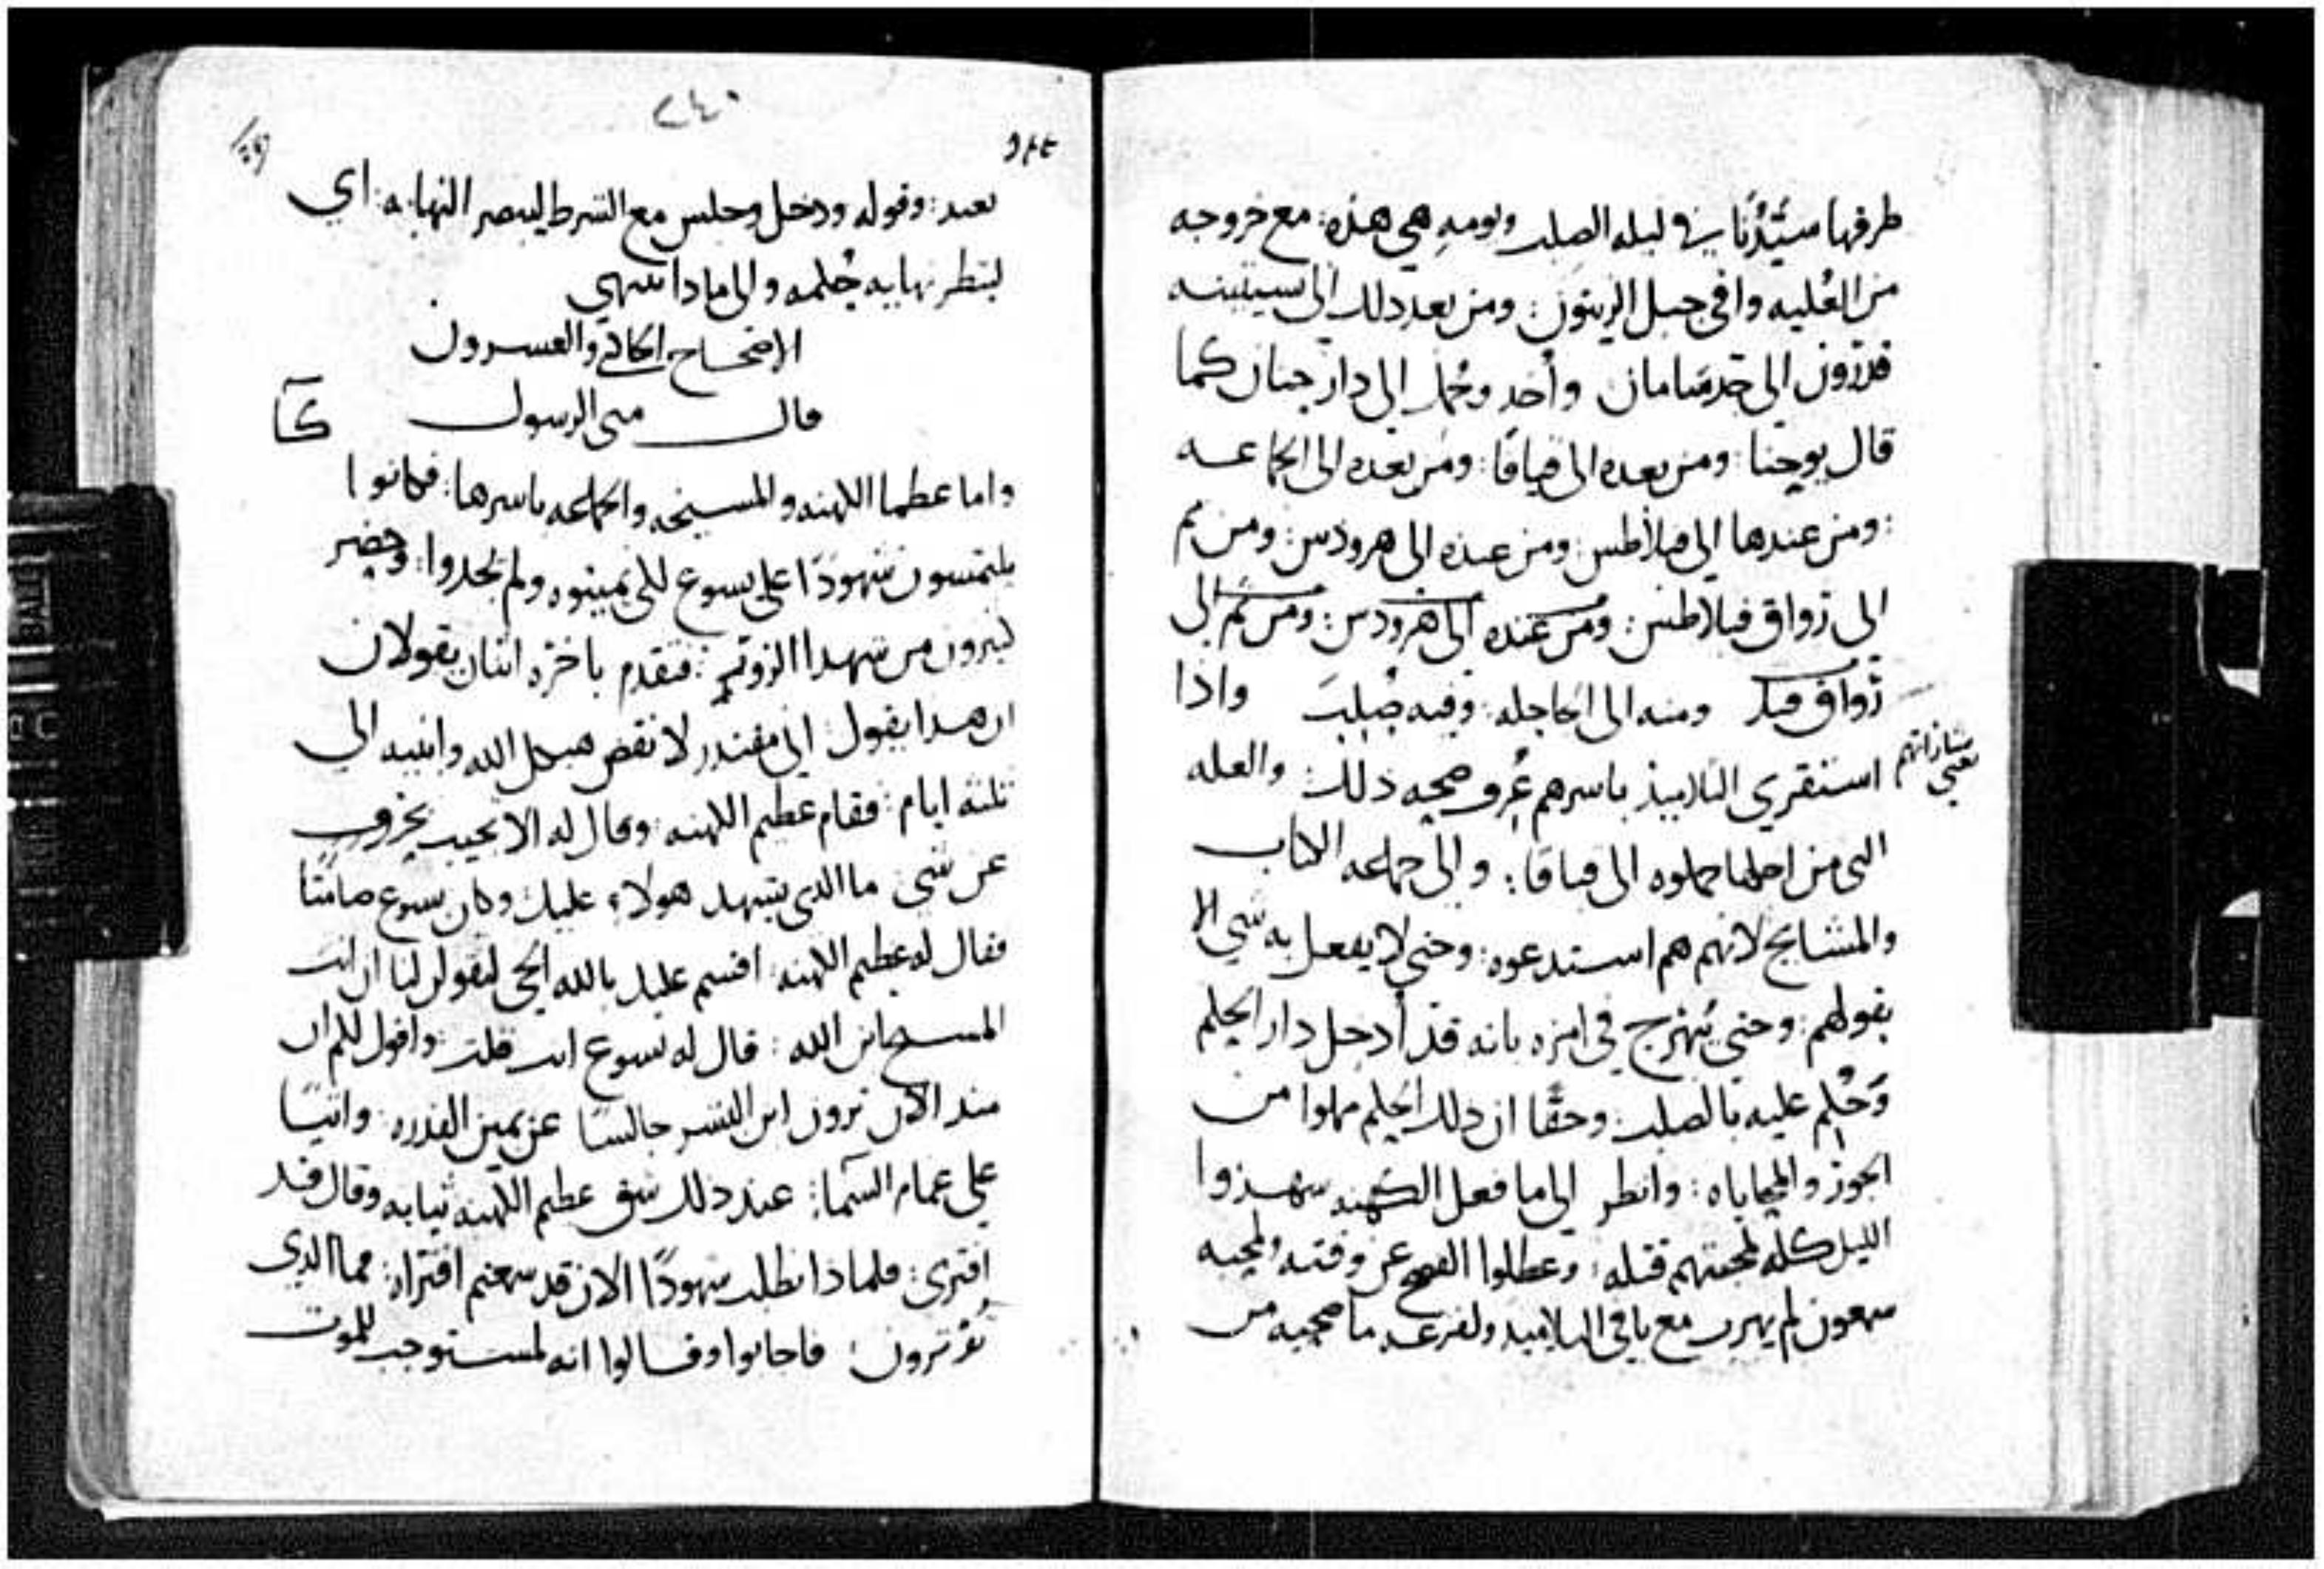 طرقها سيّدُنا في ليله الصلب ويومه هي هذه: مع خروجه
من العُليه وافى جبل الزيتون: ومن بعد ذلك الى
قدرون الى جدسامان وأُخد وحُمل الى دار حنان كما
قال يوحنا: ومن بعده الى قيافا: ومن بعده الى الجماعه
: ومن عندها الى فيلاطس: ومن عنده الى هرودس: ومن ثم
الى رواق فيلاطس: ومن عنده الى هرودس: ومن ثم الى
رواق فيلا ومنه الى الجاجله: وفيه صُلِبَ واذا
استقرى التلاميذ باسرهم عُرف صحه ذلك: والعله
يعني بشاراتهم
التى من اجلها حملوه الى قيافا: والى جماعه الكتاب
والمشايخ لانهم هم استدعوه: وحتى لا يفعل به شي الا
بقولهم: وحتى في امره بانه قد أُدخِل دار الحكم
وَحُكِم عليه بالصلب: وحقًا ان ذلك الحكم مملوا من
الجور والمحاباه: وانظر الى ما فعل الكهنه سهروا
الليل كله لمحبتهم قتله: وعطلوا الفصح عن وقته ولمحبه
سمعون لم يهرب مع باقي التلاميد ولفزعه ما صحبه من
٢٤٠
بعيد: وقوله ودخل وجلس مع الشرط ليبصر النهايه: اي
لينظر نهايه حُكمه والى مادا ينتهي
الاصحاح الحادي والعسرون
قال متى الرسول
كا
واما عظما الكهنه والمسيخه والجماعه باسرها: فكانوا
يلتمسون شهودًا على يسوع لكي يميتوه ولم يجدوا: وحضر
كثيرون من شهدا الزور: فتقدم باخره اثنان يقولان
ان هدا يقول: اني مقتدر لانقض هيكل الله وابنيه الى
ثلثه ايام: فقام عظيم الكهنه: وقال له الا تجيب بحرف
عن شي ما الدي يشهد هولاء عليك وكان يسوع صامتًا
فقال له عظيم الكهنه: اقسم عليك بالله الحي لتقولن لنا ان انت
المسيح ابن الله: قال له يسوع انت قلت: واقول لكم ان
مند الان ترون ابن البشر جالسًا عن يمين القدره: واتيًا
على غمام السما: عند ذلك شق عظيم الكهنه ثيابه وقال قد
افترى: فلماذا نطلب شهودًا الان قد سمعتم افتراه: فما الدي
تؤثرون: فاجابوا وقالوا انه لمستوجب للموت